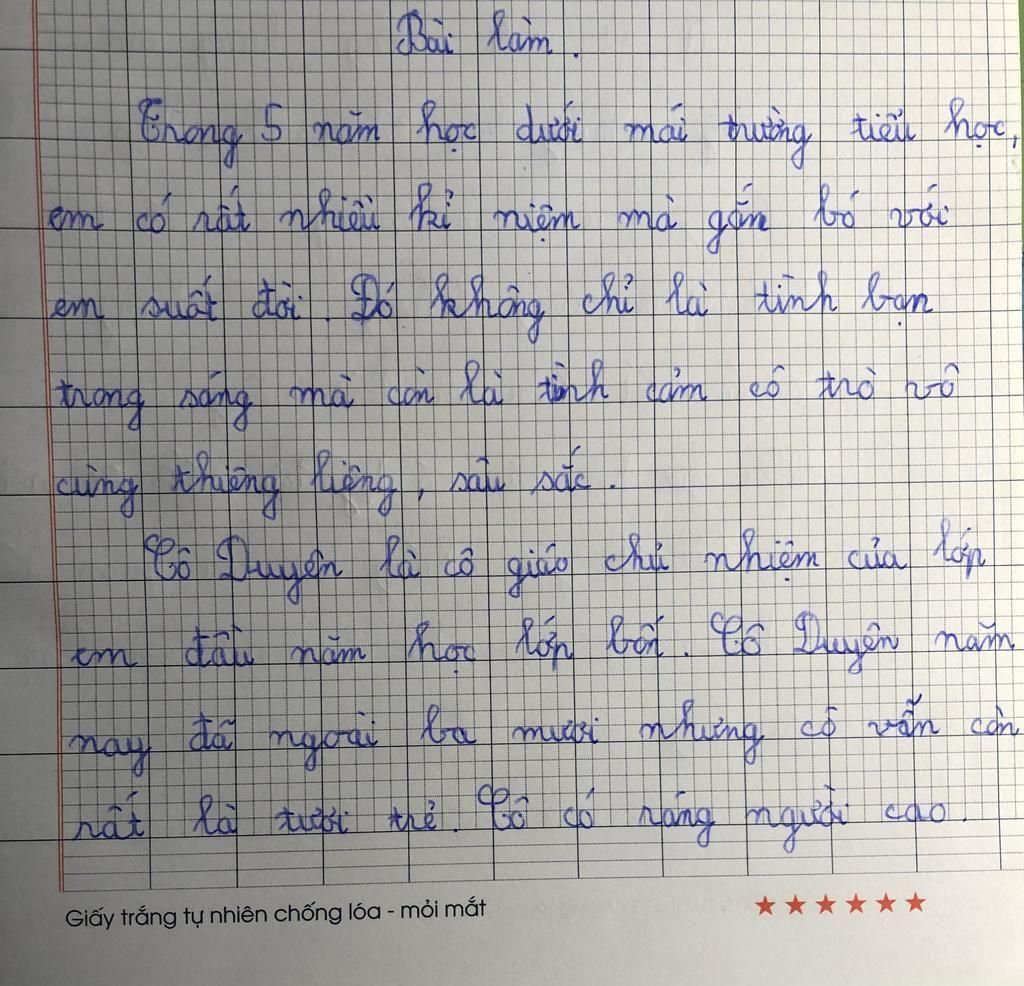 Bài làm.
Trong 5 năm học dưới mái trường tiểu học,
em có rất nhiều kỉ niệm mà gắn bó với
em suốt đời. Đó không chỉ là tình bạn
trong sáng mà còn là tình cảm cô trò vô
cùng thiêng liêng, sâu sắc.
Cô Duyên là cô giáo chủ nhiệm của lớp
em đầu năm học lớp bốn. Cô Duyên năm
nay đã ngoài ba mươi nhưng cô vẫn còn
rất là tươi trẻ. Cô có ráng người cao.
Giấy trắng tự nhiên chống lóa - mỏi mắt
★★★★★★